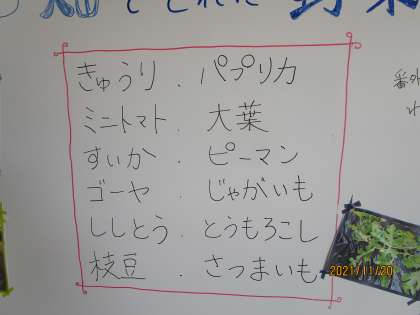 畑でとれた野菜
きゅうり ． パプリカ
ミニトマト ． 大葉
すいか ． ピーマン
ゴーヤ ． じゃがいも
ししとう ． とうもろこし
枝豆 ． さつまいも
番外
2021/11/20